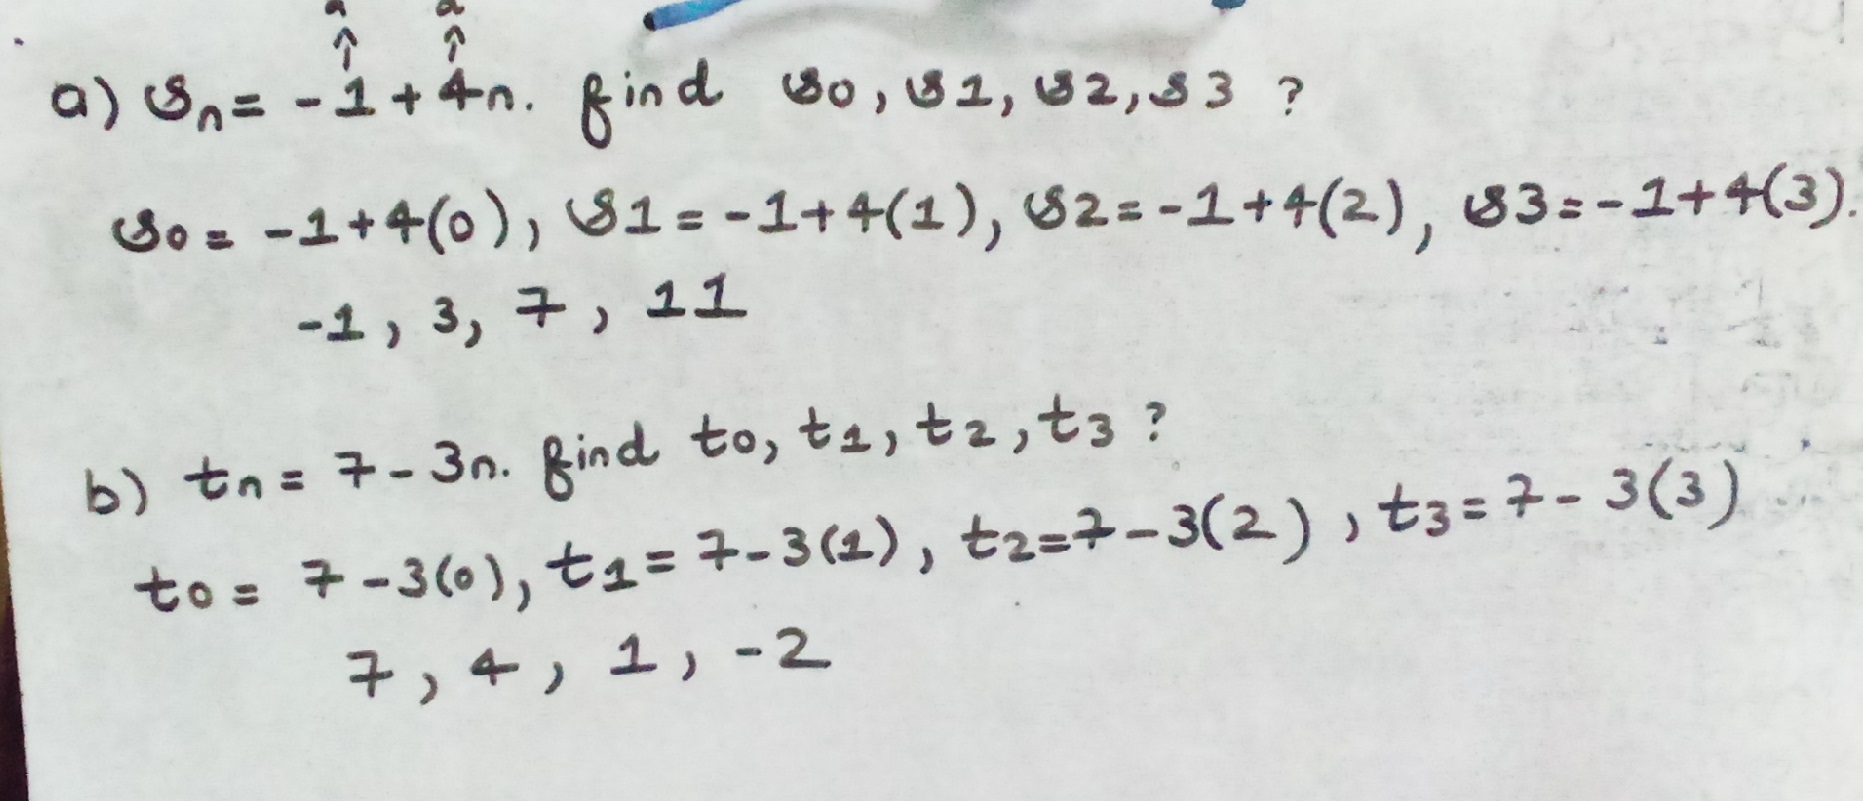 a) Sn = -1 + 4n. find S0, S1, S2, S3 ?
S0 = -1+4(0), S1 = -1+4(1), S2 = -1+4(2), S3 = -1+4(3).
-1, 3, 7, 11
b) tn = 7-3n. find t0, t1, t2, t3 ?
t0 = 7-3(0), t1 = 7-3(1), t2=7-3(2), t3=7-3(3)
7, 4, 1, -2